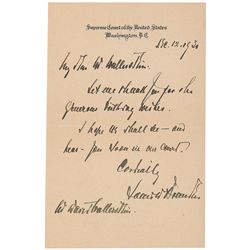 Supreme Court of the United States
Washington, D.C.
Dec. 12, 1930
My dear Mr Wallerstein:
Let me thank you for the
generous birthday wishes.
I hope we shall see — and
hear — you soon in our court.
Cordially
Mr David Wallerstein.